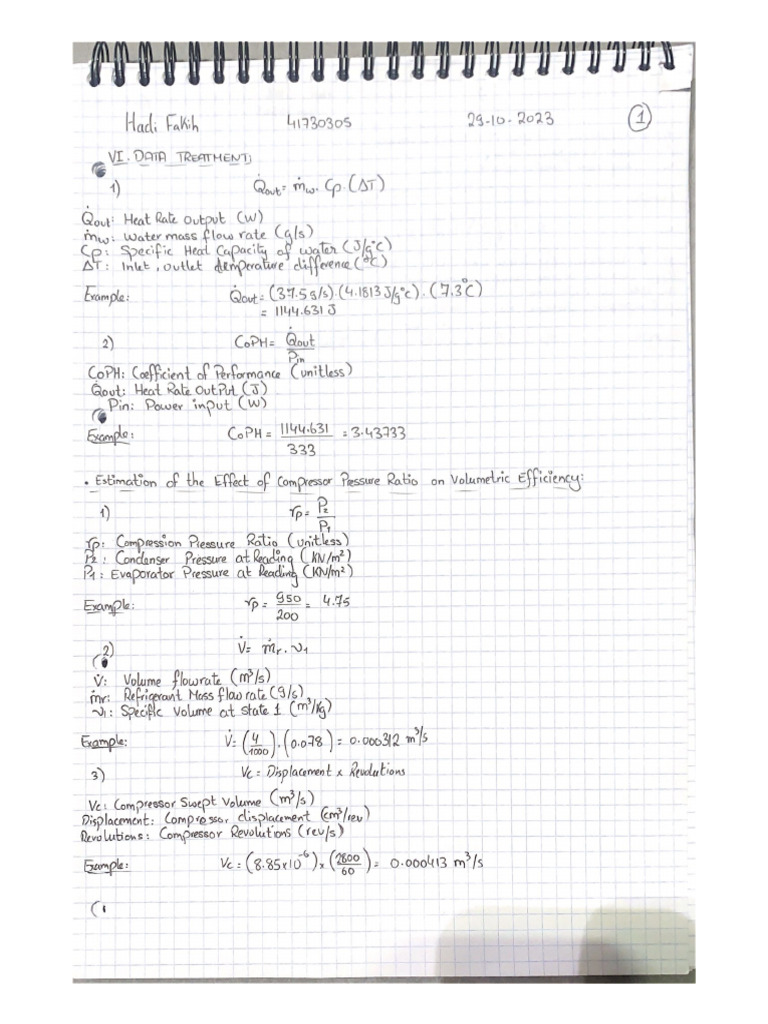 Hadi Fakih 41730305 29-10-2023 1
VI. DATA TREATMENT:
1) Q̇out = ṁw. Cp. (ΔT)
Q̇out: Heat Rate Output (W)
ṁw: Water mass flow rate (g/s)
Cp: Specific Heat Capacity of water (J/g°C)
ΔT: Inlet, outlet temperature difference (°C)
Example: Q̇out = (37.5 g/s).(4.1813 J/g°C).(7.3°C)
= 1144.631 J
2) CoPH = Q̇out / Pin
CoPH: Coefficient of Performance (unitless)
Q̇out: Heat Rate Output (J)
Pin: Power input (W)
Example: CoPH = 1144.631 / 333 = 3.43733
• Estimation of the Effect of Compressor Pressure Ratio on Volumetric Efficiency:
1) rp = P2 / P1
rp: Compression Pressure Ratio (unitless)
P2: Condenser Pressure at Reading (KN/m²)
P1: Evaporator Pressure at Reading (KN/m²)
Example: rp = 950 / 200 = 4.75
2) V̇ = ṁr. ν1
V̇: Volume flowrate (m³/s)
ṁr: Refrigerant Mass flow rate (g/s)
ν1: Specific Volume at state 1 (m³/Kg)
Example: V̇ = (4/1000).(0.078) = 0.000312 m³/s
3) Vc = Displacement x Revolutions
Vc: Compressor Swept Volume (m³/s)
Displacement: Compressor displacement (cm³/rev)
Revolutions: Compressor Revolutions (rev/s)
Example: Vc = (8.85x10⁻⁶) x (2800/60) = 0.000413 m³/s